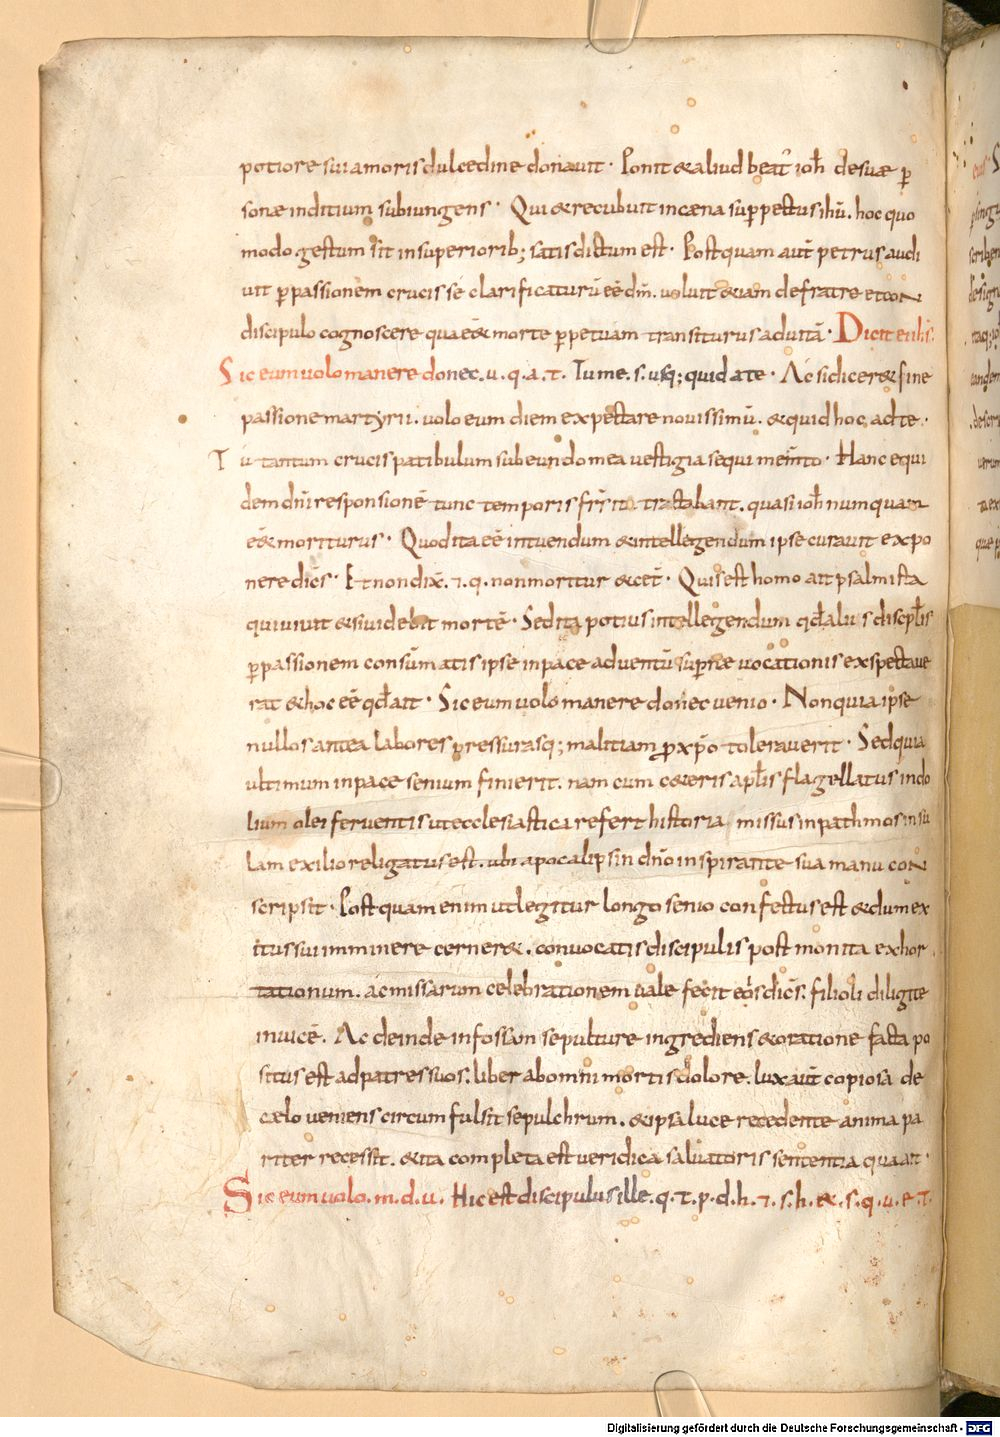 potiore sui amoris dulcedine donauit · Ponit & aliud beat᷒ ioħ de suae ꝑ
sonae inditium subiungens · Qui & recubuit in caena sup pectus ihū. hoc quo
modo gestum sit in superiorib; satis dictum est · Postquam aut̄ petrus audi
uit ꝑ passionem crucis se clarificaturū eē dm̄. uoluit &iam de fratre et con
discipulo cognoscere qua e&̄ morte ꝑpetuam transiturus ad uitā · Dicit ei ihs̄.
Sic eum uolo manere donec .u. q. a. t. Tu me. s. usq; quid ad te · Ac si dicer& sine
passione martyrii. uolo eum diem expectare nouissimū. & quid hoc ad te ·
Tu tantum crucis patibulum subeundo mea uestigia sequi mem̄to · Hanc equi
dem dn̄i responsionē tunc temporis fr̄s ita tractabant. quasi ioħ numquam
e&̄ moriturus · Quod ita eē intuendum & intellegendum ipse curauit expo
nere dicēs · Et non dix̄. i. q. non moritur & cet̄ · Quis est homo ait psalmista
qui uiuit & si uidebit mortē · Sed ita potius intellegendum qđ aliis discipl̄is
ꝑ passionem consūmatis ipse in pace aduentū supnae uocationis exspectaue
rat & hoc eē qđ ait · Sic eum uolo manere donec uenio · Non quia ipse
nullos antea labores pressurasq; malitiam ꝓ xp̄o tolerauerit · Sed quia
ultimum in pace senium finierit. nam cum c&eris apl̄is flagellatus in do
lium olei feruentis ut ecclesiastica refert historia missus in pathmos insu
lam exilio religatus est. ubi apocalipsin dn̄o inspirante sua manu con
scripsit · Postquam enim ut legitur longo senio confectus est & dum ex
itus sui imminere cerner&. conuocatis discipulis post monita exhor
tationum. ac missarum celebrationem uale fecit eis dicēs. filioli diligite
inuicē. Ac deinde in fossam sepulture ingrediens & oratione facta po
situs est ad patres suos. liber ab omni mortis dolore. lux aut̄ copiosa de
caelo ueniens circumfulsit sepulchrum. & ipsa luce recedente anima pa
riter recessit. & ita completa est ueridica saluatoris sententia qua ait ·
Sic eum uolo. m. d. u. Hic est discipulus ille. q. t. p. d. h. 7. s. h. &. s. q. u. e. t.
Digitalisierung gefördert durch die Deutsche Forschungsgemeinschaft - DFG